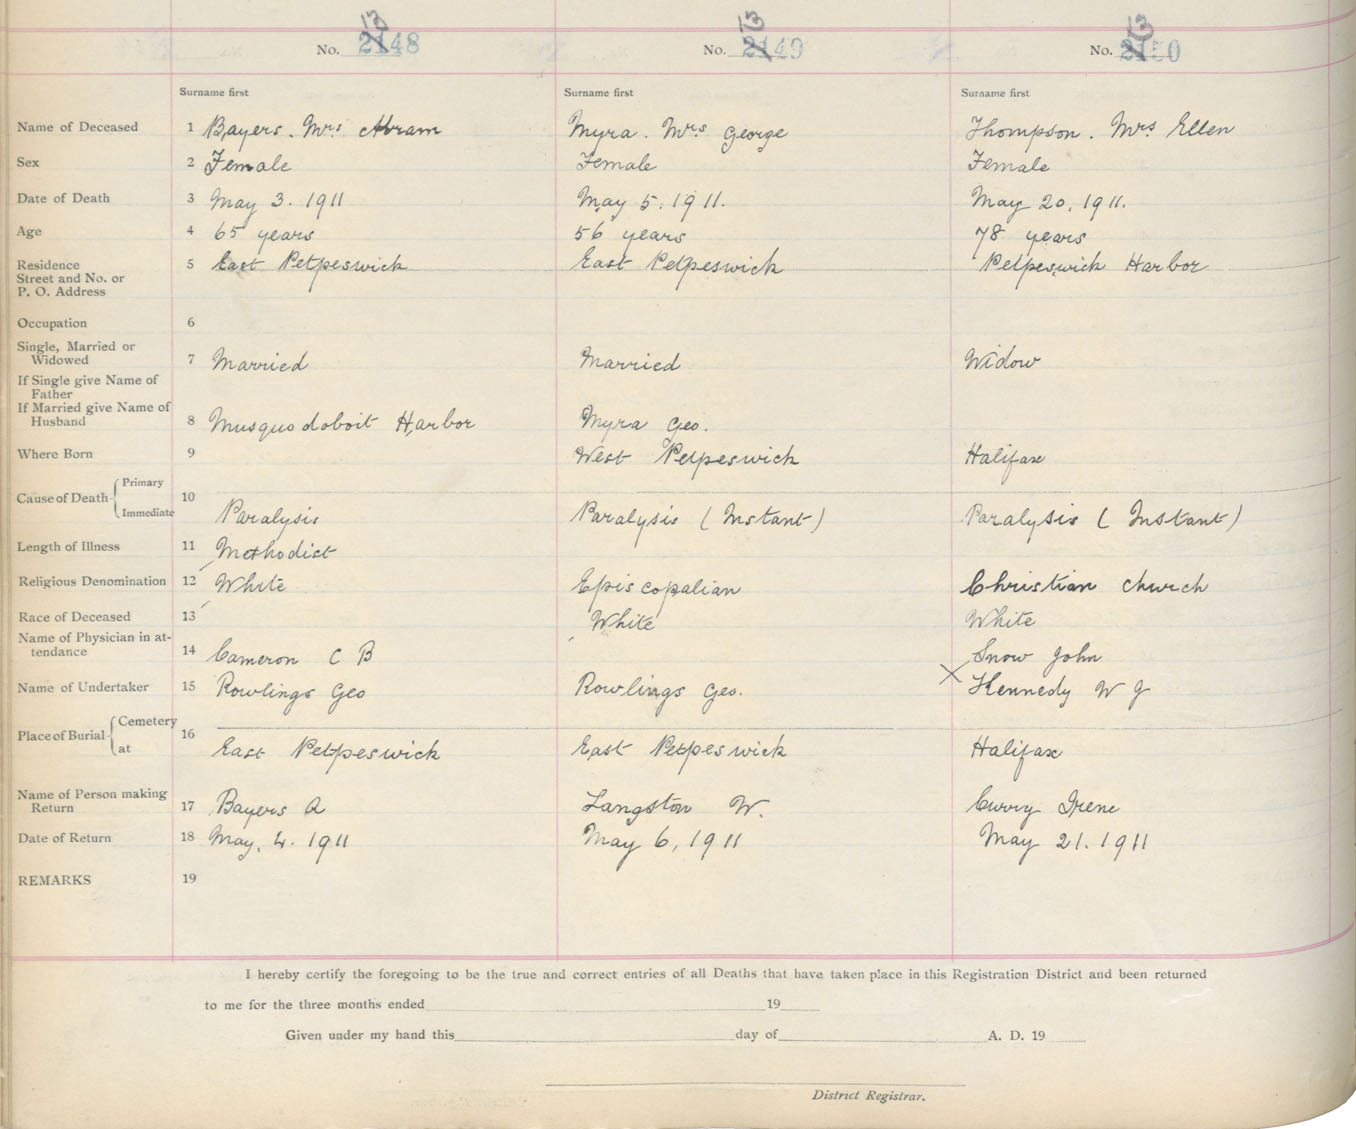 13 13 13
No. 2148 No. 2149 No. 2150
Surname first Surname first Surname first
Name of Deceased 1 Bayers. Mrs Abram Myra. Mrs George Thompson. Mrs Ellen
Sex 2 Female Female Female
Date of Death 3 May 3. 1911 May 5. 1911. May 20. 1911.
Age 4 65 years 56 years 78 years
Residence 5 East Petpeswick East Petpeswick Petpeswick Harbor
Street and No. or
P. O. Address
Occupation 6
Single, Married or
Widowed 7 Married Married Widow
If Single give Name of
Father
If Married give Name of
Husband 8 Musquodoboit Harbor Myra Geo.
Where Born 9 West Petpeswick Halifax
Cause of Death Primary
10
Immediate Paralysis Paralysis (Instant) Paralysis (Instant)
Length of Illness 11 Methodist
Religious Denomination 12 White Episcopalian Christian church
Race of Deceased 13 White White
Name of Physician in at-
tendance 14 Cameron C B Snow John
Name of Undertaker 15 Rowlings Geo Rowlings Geo. X Kennedy W J
Place of Burial Cemetery
16
at East Petpeswick East Petpeswick Halifax
Name of Person making
Return 17 Bayers A Langston W. Curry Irene
Date of Return 18 May, 4. 1911 May 6, 1911 May 21. 1911
REMARKS 19
I hereby certify the foregoing to be the true and correct entries of all Deaths that have taken place in this Registration District and been returned
to me for the three months ended 19
Given under my hand this day of A. D. 19
District Registrar.